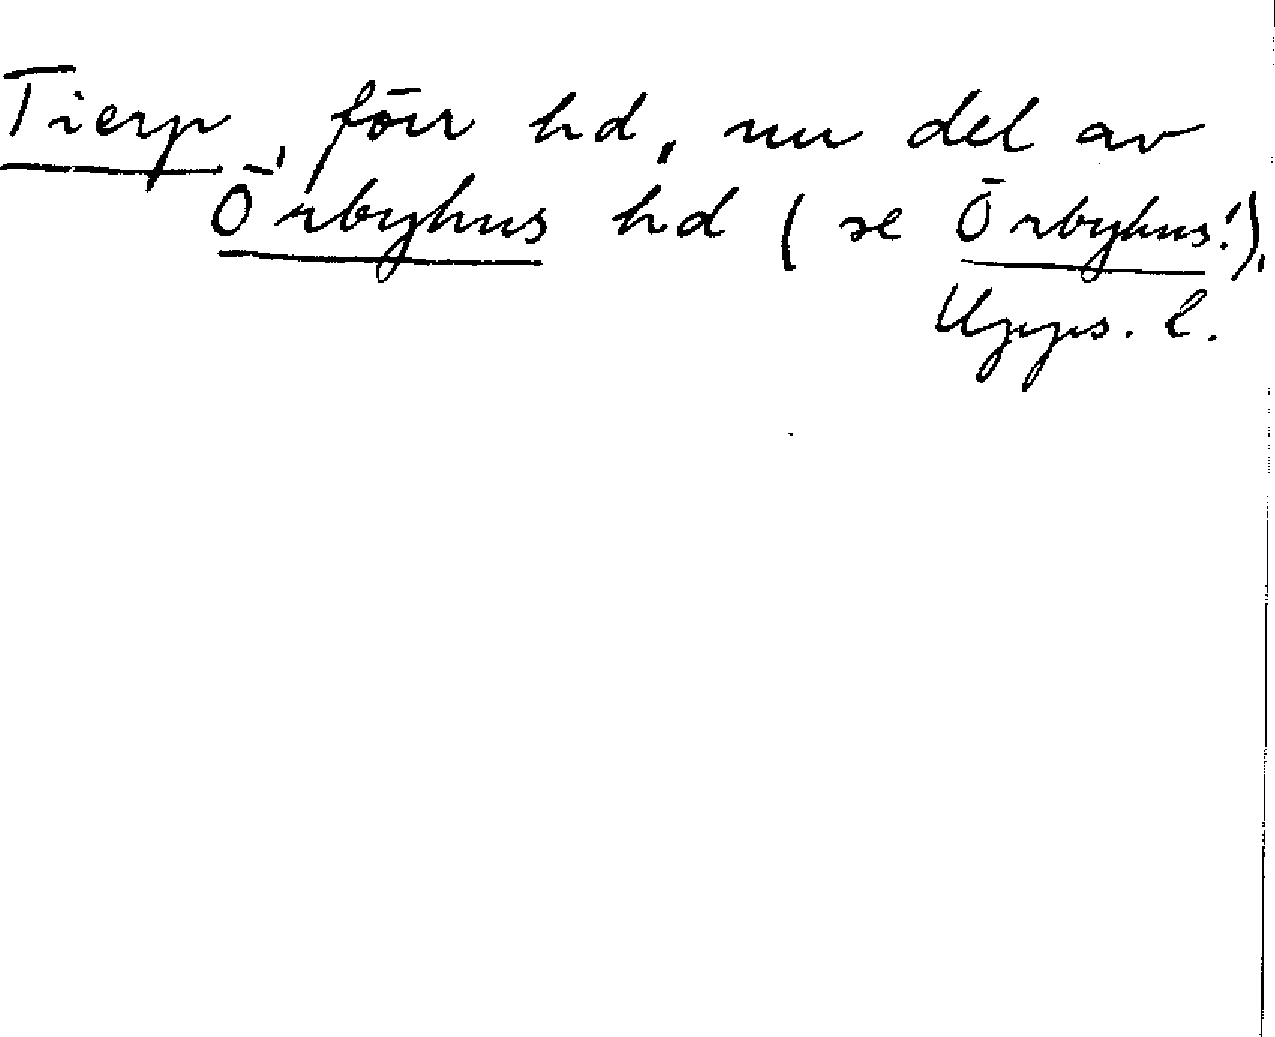 Tierp, förr hd, nu del av
Örbyhus hd (se Örbyhus!),
Upps. l.